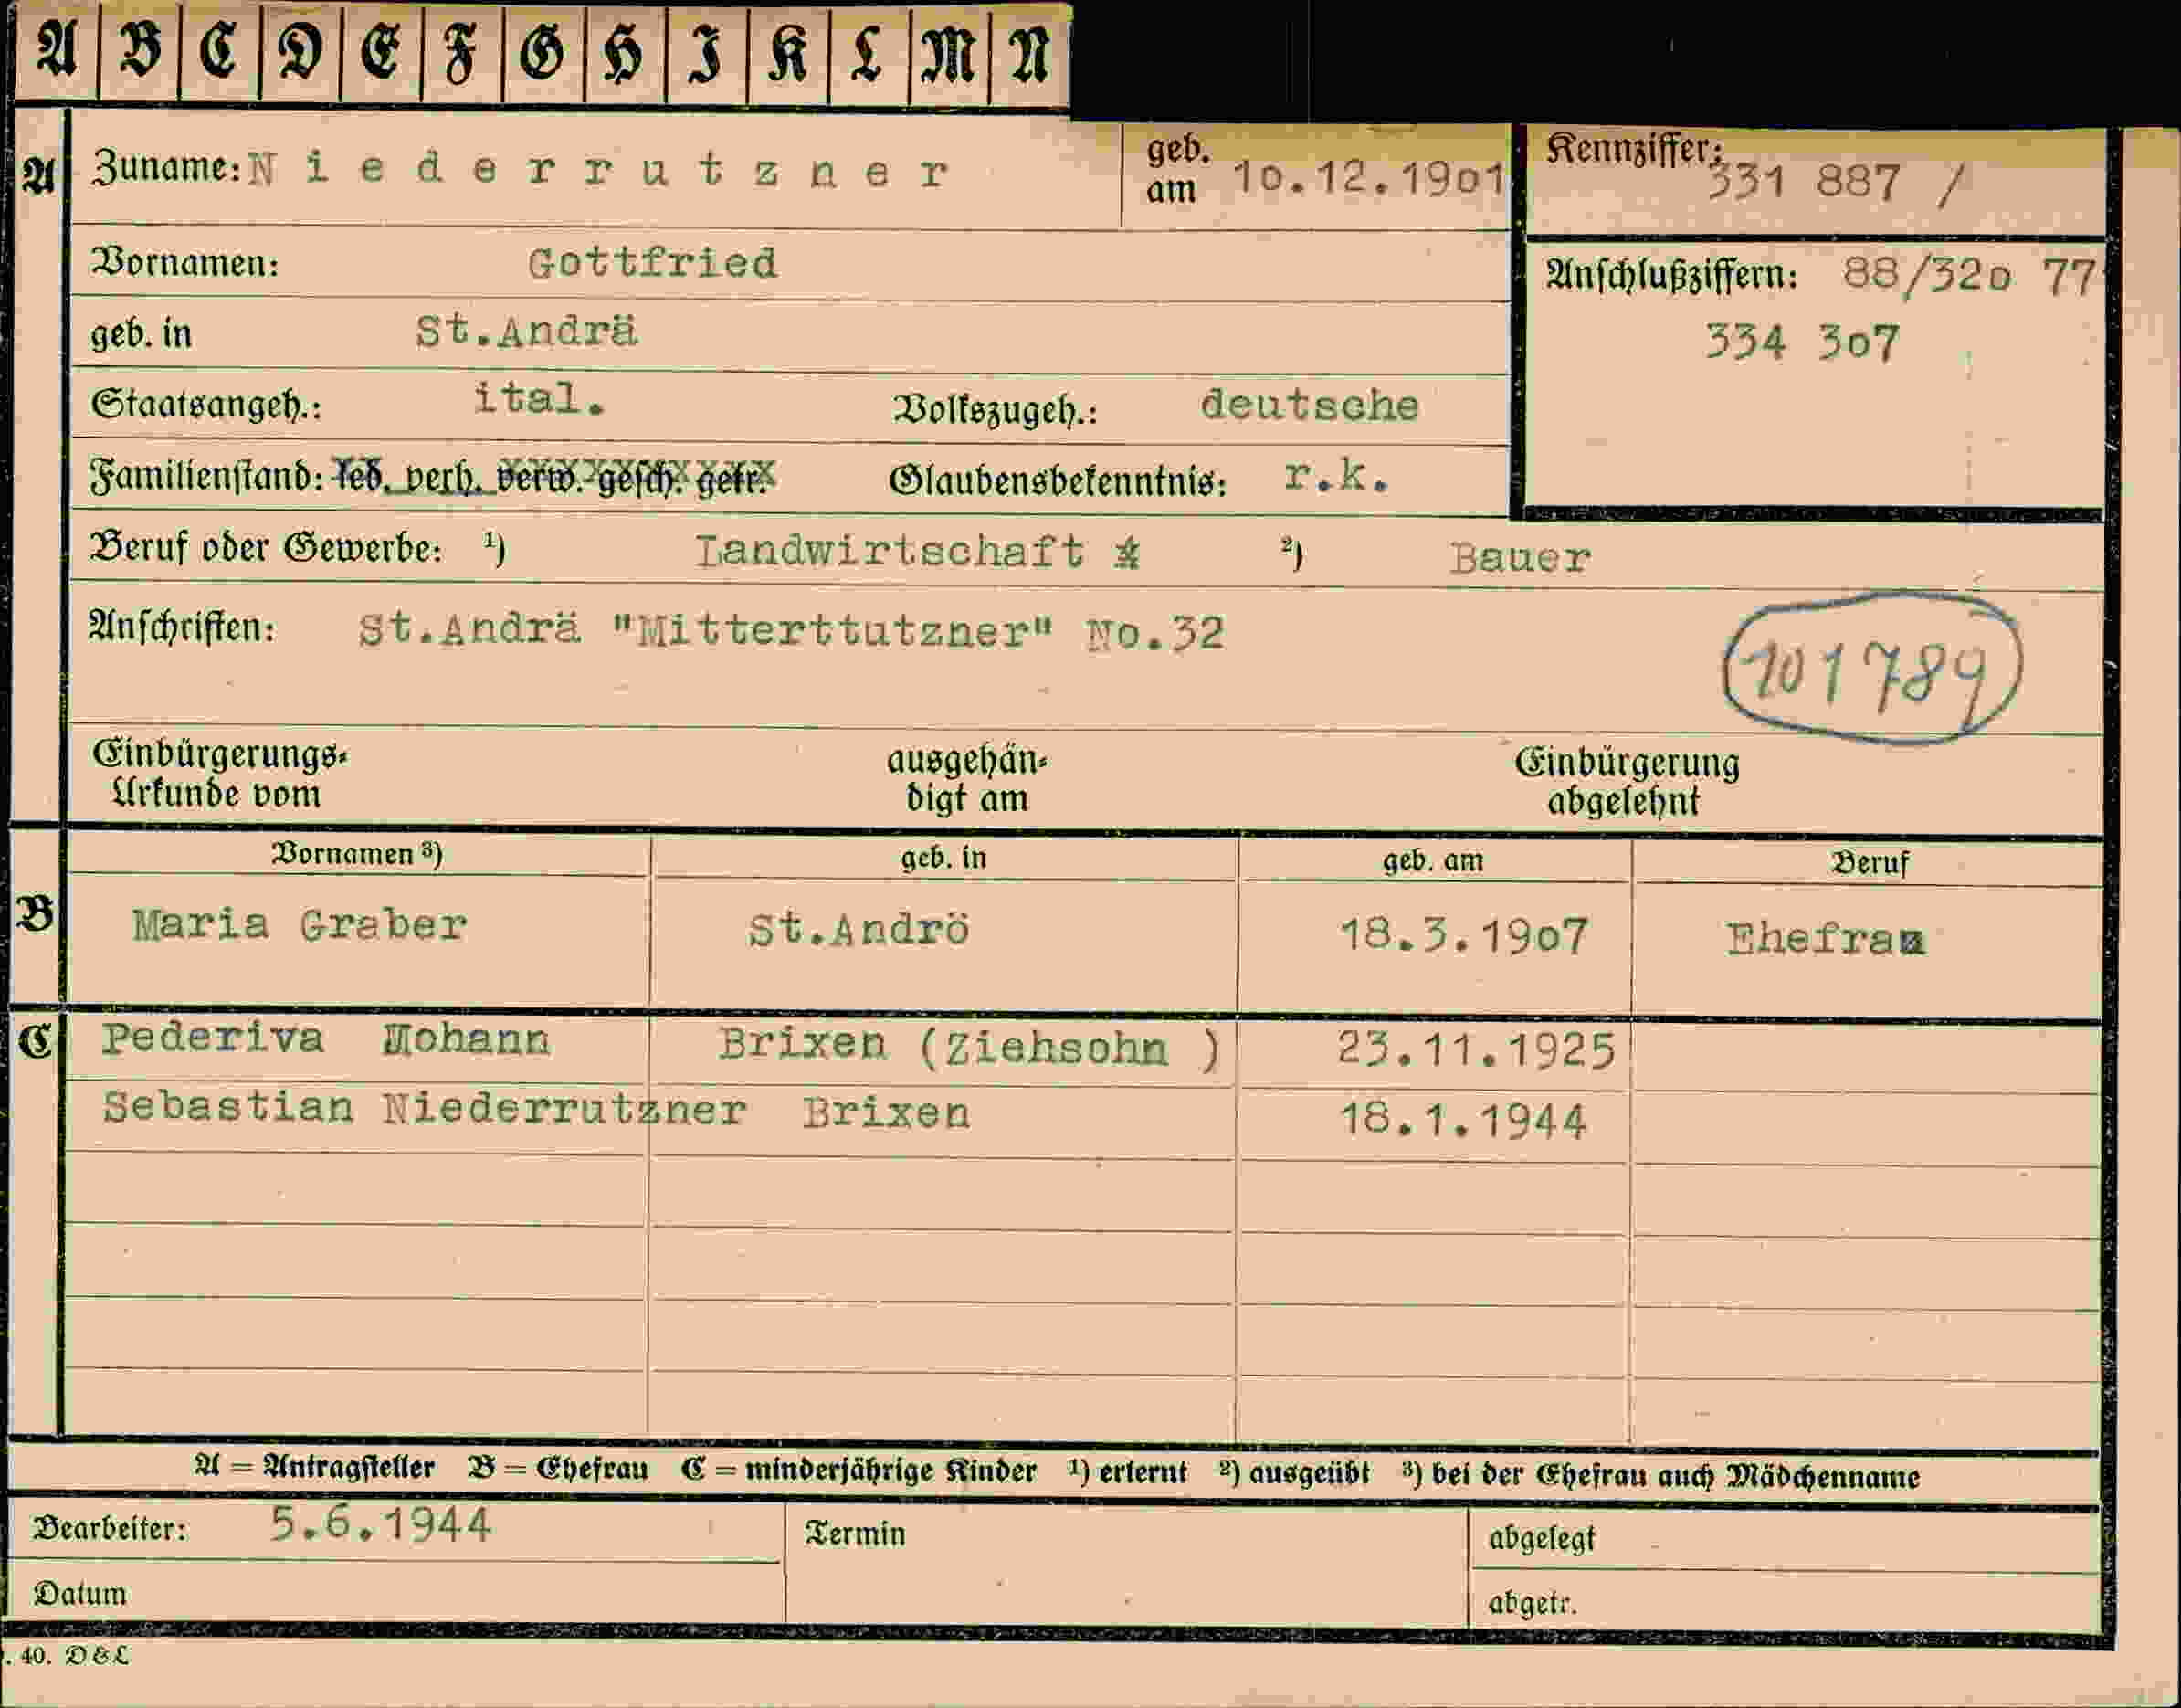 A B C D E F G H I K L M N
A Zuname: Niederrutzner geb. am 10.12.1901 Kennziffer: 331 887 /
Vornamen: Gottfried Anschlußziffern: 88/320 77
geb. in St.Andrä 334 307
Staatsangeh.: ital. Volkszugeh.: deutsche
Familienstand: led. verh. verw. gesch. getr. Glaubensbekenntnis: r.k.
Beruf oder Gewerbe: ¹) Landwirtschaft ²) Bauer
Anschriften: St.Andrä "Mitterttutzner" No.32
101789
Einbürgerungs- Urkunde vom ausgehän- digt am Einbürgerung abgelehnt
Vornamen ³) geb. in geb. am Beruf
B Maria Graber St.Andrö 18.3.1907 Ehefrau
C Pederiva Mohann Brixen (Ziehsohn ) 23.11.1925
Sebastian Niederrutzner Brixen 18.1.1944
A = Antragsteller B = Ehefrau C = minderjährige Kinder ¹) erlernt ²) ausgeübt ³) bei der Ehefrau auch Mädchenname
Bearbeiter: 5.6.1944 Termin abgelegt
Datum abgetr.
. 40. D & L